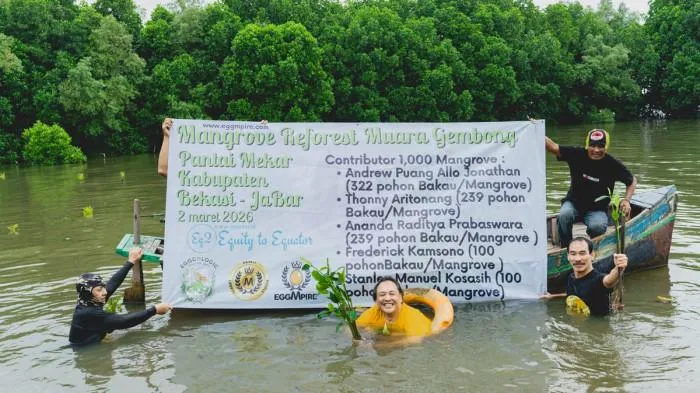 www.eggmpire.com
Mangrove Reforest Muara Gembong
Pantai Mekar
Kabupaten
Bekasi - JaBar
2 maret 2026
Eq2 Equity to Equator
EGGCOLOGIC
M
EGGMPIRE
Contributor 1,000 Mangrove :
• Andrew Puang Ailo Jonathan
(322 pohon Bakau/Mangrove)
• Thonny Aritonang (239 pohon
Bakau/Mangrove)
• Ananda Raditya Prabaswara
(239 pohon Bakau/Mangrove )
• Frederick Kamsono (100
pohonBakau/Mangrove )
Manuel Kosasih (100
Bakau/Mangrove)